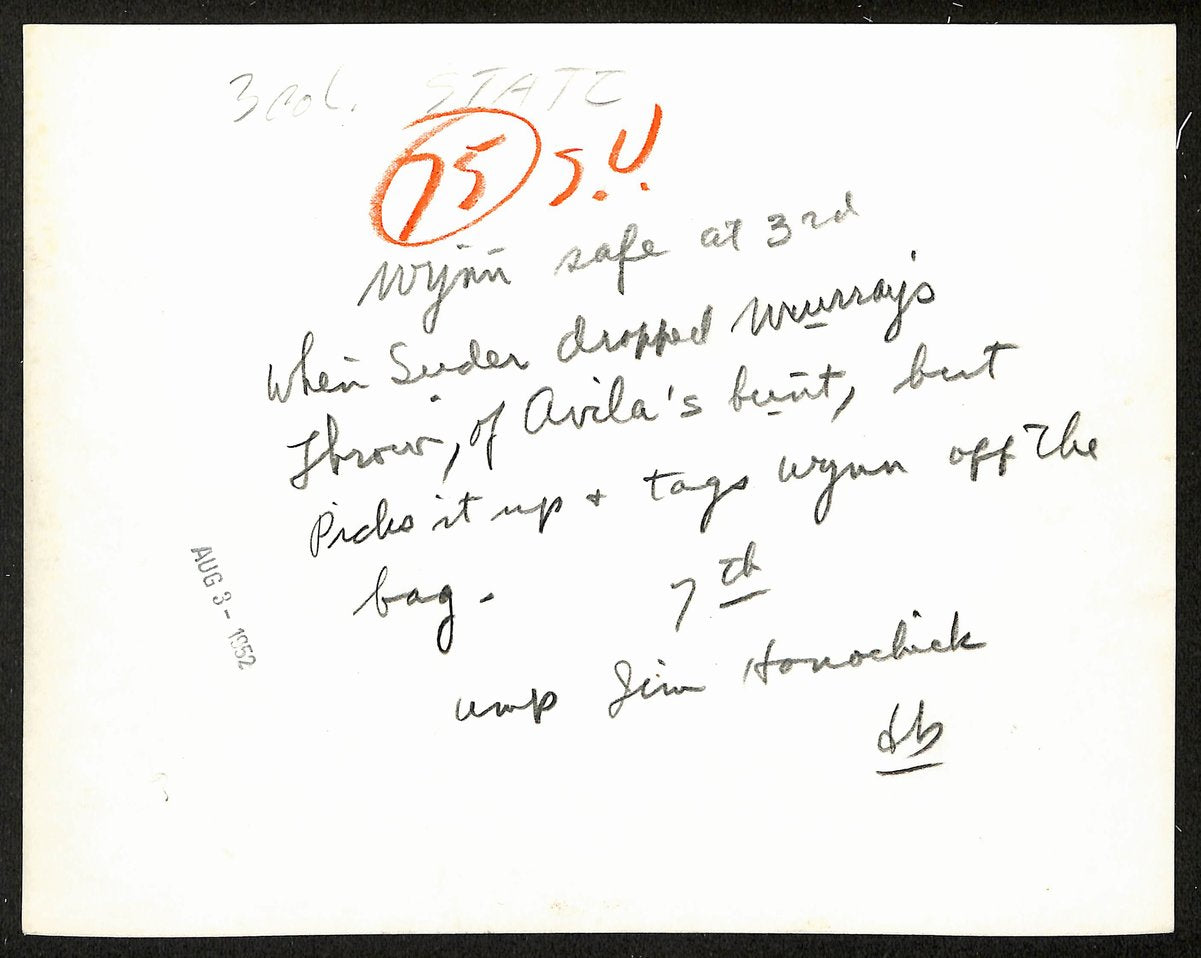 3 col. STATE
75 S.U.
Wynn safe at 3rd
when Suder dropped Murray's
throw, of Avila's bunt, but
Picks it up + tags Wynn off the
bag. 7th
ump Jim Honochick
db
AUG 3 - 1952